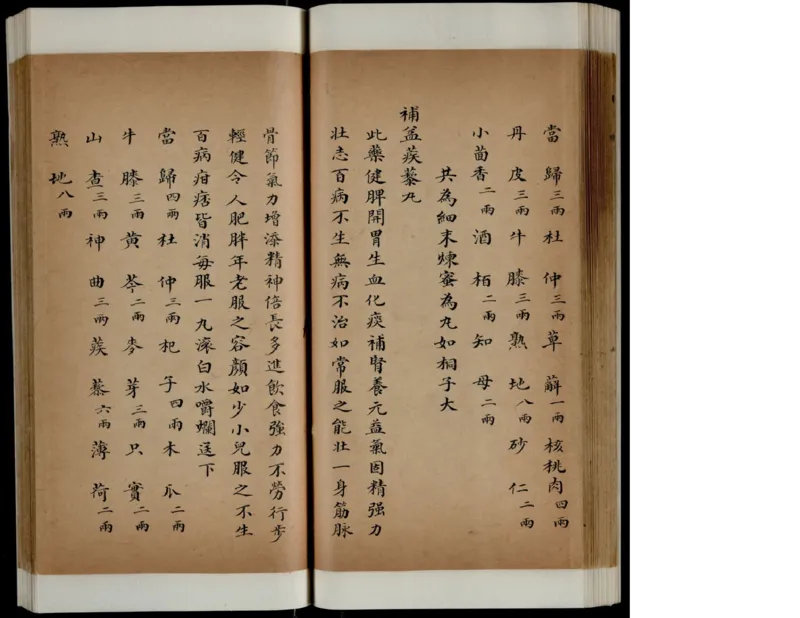 當歸三兩杜仲三兩草薢一兩核桃肉四兩
丹皮三兩牛膝三兩熟地八兩砂仁二兩
小茴香二兩酒栢二兩知母二兩
共為細末煉蜜為丸如桐子大
補益蒺藜丸
此藥健脾開胃生血化痰補腎養元益氣固精强力
壯志百病不生無病不治如常服之能壯一身筋脉
骨節氣力增添精神倍長多進飲食強力不勞行步
輕健令人肥胖年老服之容顏如少小兒服之不生
百病疳痞皆消每服一九滚白水嚼爛送下
當歸四兩杜仲三兩杞子四兩木瓜二兩
牛膝三兩黄芩二兩麥芽三兩只實二兩
山查三兩神曲三兩蒺藜六兩薄荷二兩
熟地八兩